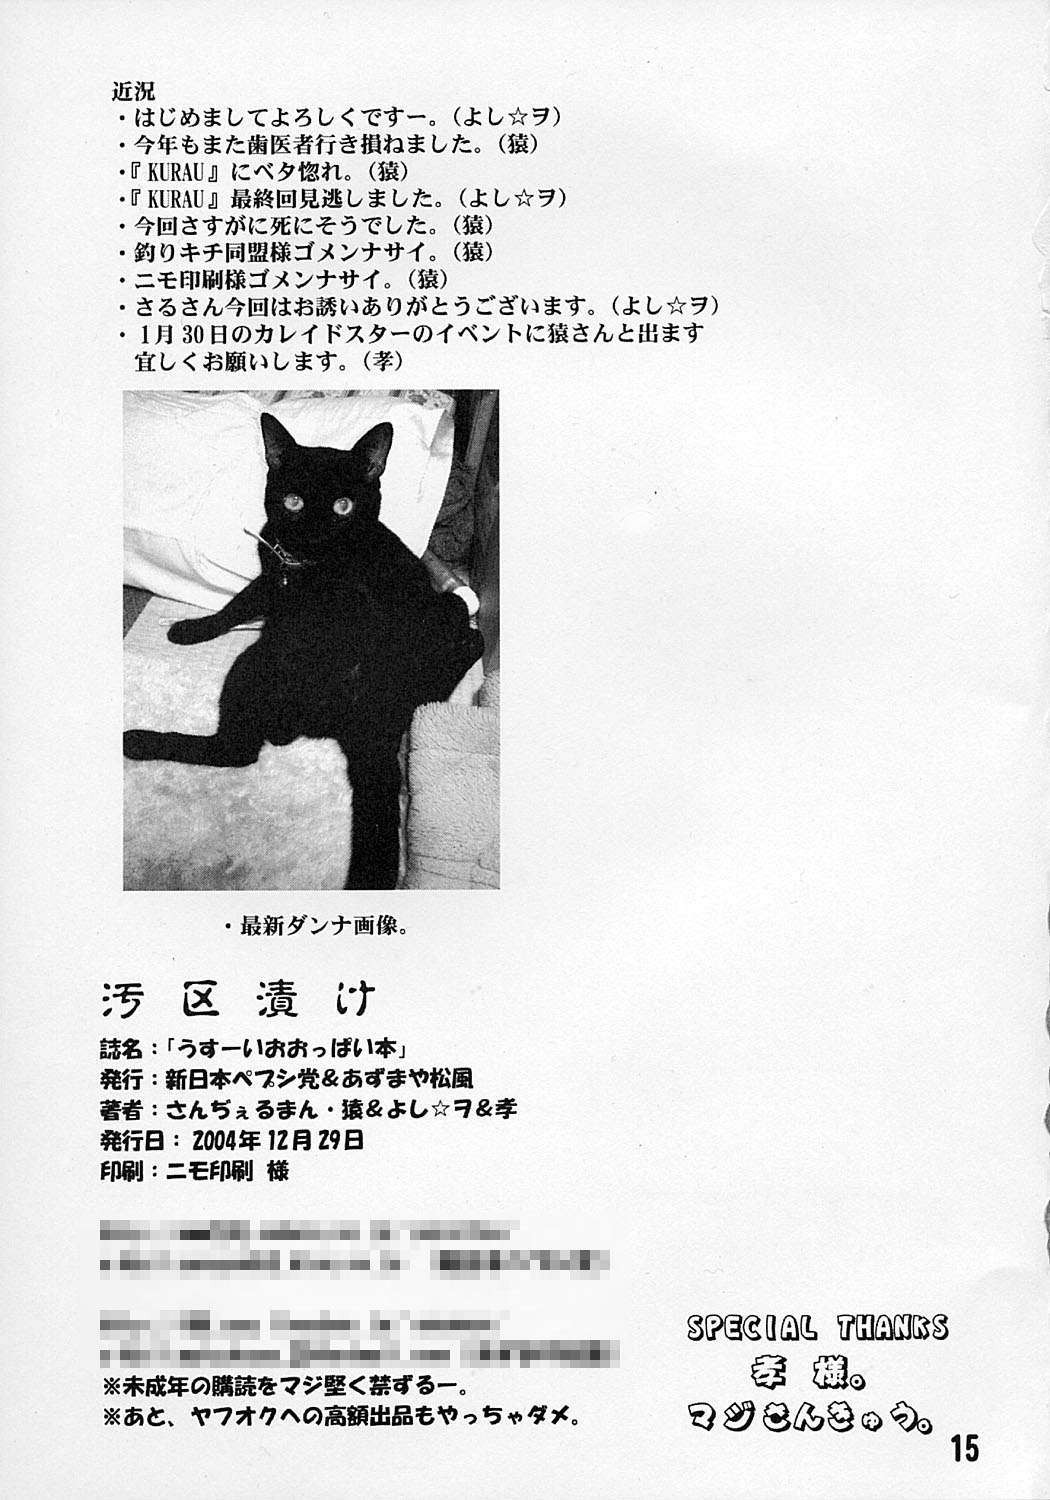 近況
・はじめましてよろしくですー。（よし☆ヲ）
・今年もまた歯医者行き損ねました。（猿）
・『KURAU』にベタ惚れ。（猿）
・『KURAU』最終回見逃しました。（よし☆ヲ）
・今回さすがに死にそうでした。（猿）
・釣りキチ同盟様ゴメンナサイ。（猿）
・ニモ印刷様ゴメンナサイ。（猿）
・さるさん今回はお誘いありがとうございます。（よし☆ヲ）
・1月30日のカレイドスターのイベントに猿さんと出ます
宜しくお願いします。（孝）
・最新ダンナ画像。
汚区漬け
誌名：「うすーいおおっぱい本」
発行：新日本ペプシ党＆あずまや松風
著者：さんぢぇるまん・猿＆よし☆ヲ＆孝
発行日：2004年12月29日
印刷：ニモ印刷 様
※未成年の購読をマジ堅く禁ずるー。
※あと、ヤフオクへの高額出品もやっちゃダメ。
SPECIAL THANKS
孝 様。
マジさんきゅう。
15